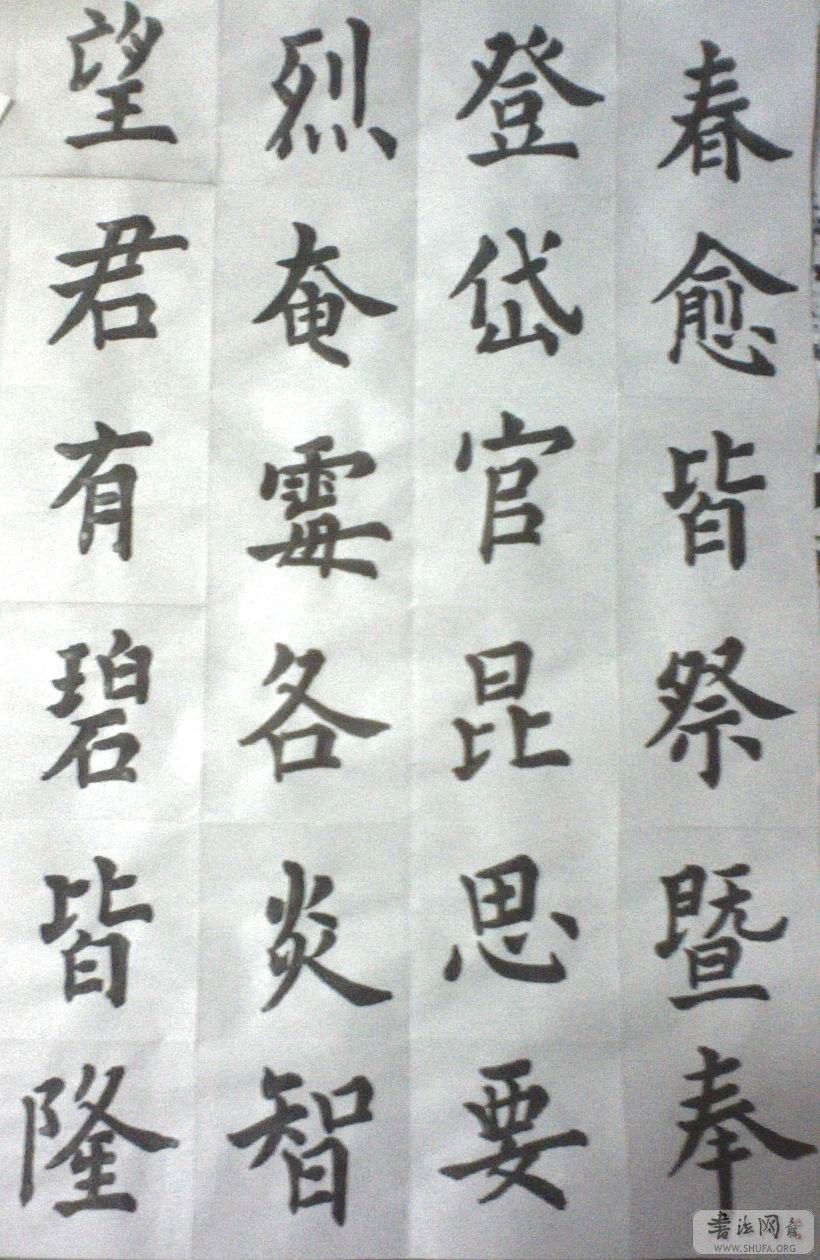 春愈皆祭暨奉
登岱官昆思要
烈奄霉各炎智
望君有碧皆隆
書法网
WWW.SHUFA.ORG